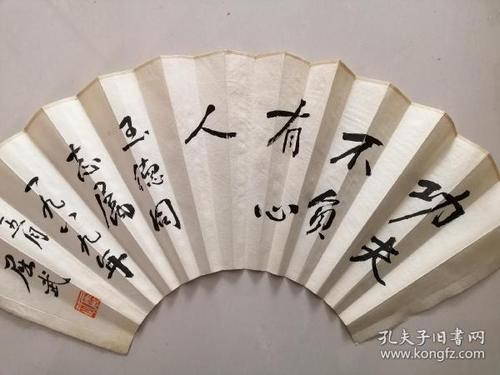 功夫
不負
有心
人
玉德同
志属
一九八九年
五月
孔夫子旧书网
www.kongfz.com